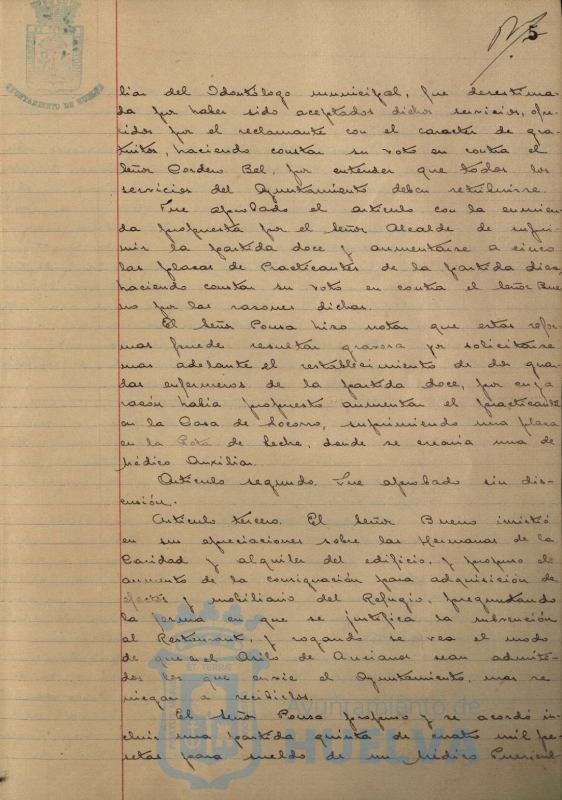 5
AYUNTAMIENTO DE HUELVA
liar del Odontólogo municipal, fue desestima-
da por haber sido aceptados dichos servicios, ofre-
cidos por el reclamante con el carácter de gra-
tuitos, haciendo constar su voto en contra el
Señor Cordero Bel, por entender que todos los
servicios del Ayuntamiento deben retribuirse.
Fue aprobado el artículo con la enmien-
da propuesta por el Señor Alcalde de supri-
mir la partida doce y aumentarse a cinco
las plazas de Practicantes de la partida diez,
haciendo constar su voto en contra el Señor Bue-
no por las razones dichas.
El Señor Ponsa hizo notar que estas refor-
mas puede resultar gravosa y solicitarse
mas adelante el restablecimiento de dos
enfermeros de la partida doce, por cuya
razón había propuesto aumentar el practicante
en la Casa de Socorro, suprimiendo una plaza
en la Gota de Leche, donde se crearía una de
Médico Auxiliar.
Artículo segundo. Fue aprobado sin dis-
cusión.
Artículo tercero. El Señor Bueno insistió
en sus apreciaciones sobre las Hermanas de la
Caridad y alquiler del edificio, y propuso el
aumento de la consignación para adquisición de
efectos y mobiliario del Refugio, preguntando
la forma en que se justifica la subvención
al Restaurant, y rogando se vea el modo
de que en el Asilo de Ancianos sean admiti-
dos los que envie el Ayuntamiento, mas se
niegan a recibirlos.
El Señor Ponsa propuso y se acordó in-
cluir una partida quinta de cuatro mil pe-
setas para sueldo de un Médico Puericul-
Ayuntamiento de
HUELVA